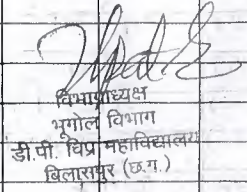 विभागाध्यक्ष
भूगोल विभाग
डी.पी. विप्र महाविद्यालय
बिलासपुर (छ.ग.)